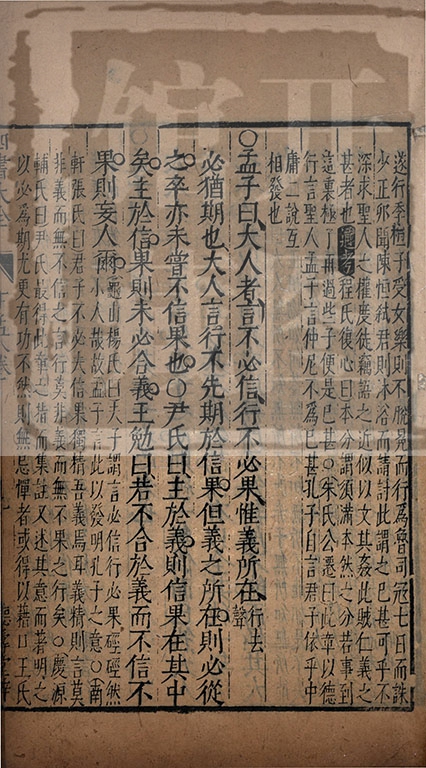 遂行季桓子受女樂則不脫冕而行為魯司寇七日而誅
少正卯聞陳恒弒君則沐浴而請討此謂之已甚可乎不
深求聖人之權度徒竊語之近似以文其姦此賊仁義之
甚者也 通考 程氏復心曰本分謂須滿本然之分若事到
這裏極了再過些子便是已甚○朱氏公遷曰此章以德
行言聖人孟子言仲尼不為已甚孔子自言君子依乎中
庸二說互
相發也
○孟子曰大人者言不必信行不必果惟義所在行去聲
必猶期也大人言行不先期於信果但義之所在則必從
之卒亦未嘗不信果也○尹氏曰主於義則信果在其中
矣主於信果則未必合義王勉曰若不合於義而不信不
果則妄人爾
龜山楊氏曰夫子謂言必信行必果硜硜然
小人哉故孟子言此以發明孔子之意○南
軒張氏曰君子不必夫信果獨精吾義焉耳義精則言莫
非義而無不信之言行莫非義而無不果之行矣○慶源
輔氏曰尹氏最得此章之指而集註又述其意而著明之
以必為期尤更有功不然則無忌憚者或得以藉口王氏